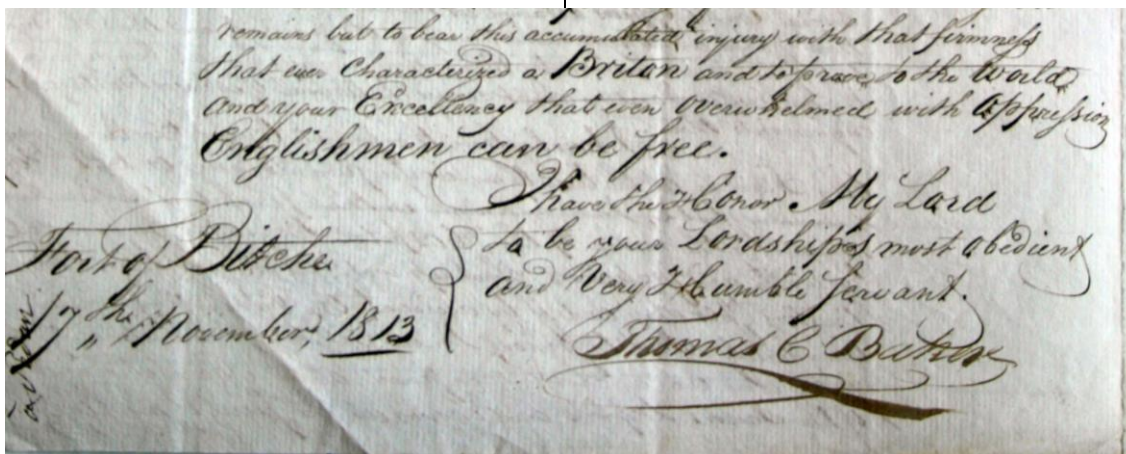 remains but to bear this accumulated injury with that firmness
that ever Characterized a Briton and to prove to the World
and your Excellency that even overwhelmed with oppression
Englishmen can be free.
I have the Honor My Lord
to be your Lordship's most obedient
and Very Humble Servant.
Thomas C Butson
Fort of Bitche
17 th November, 1813